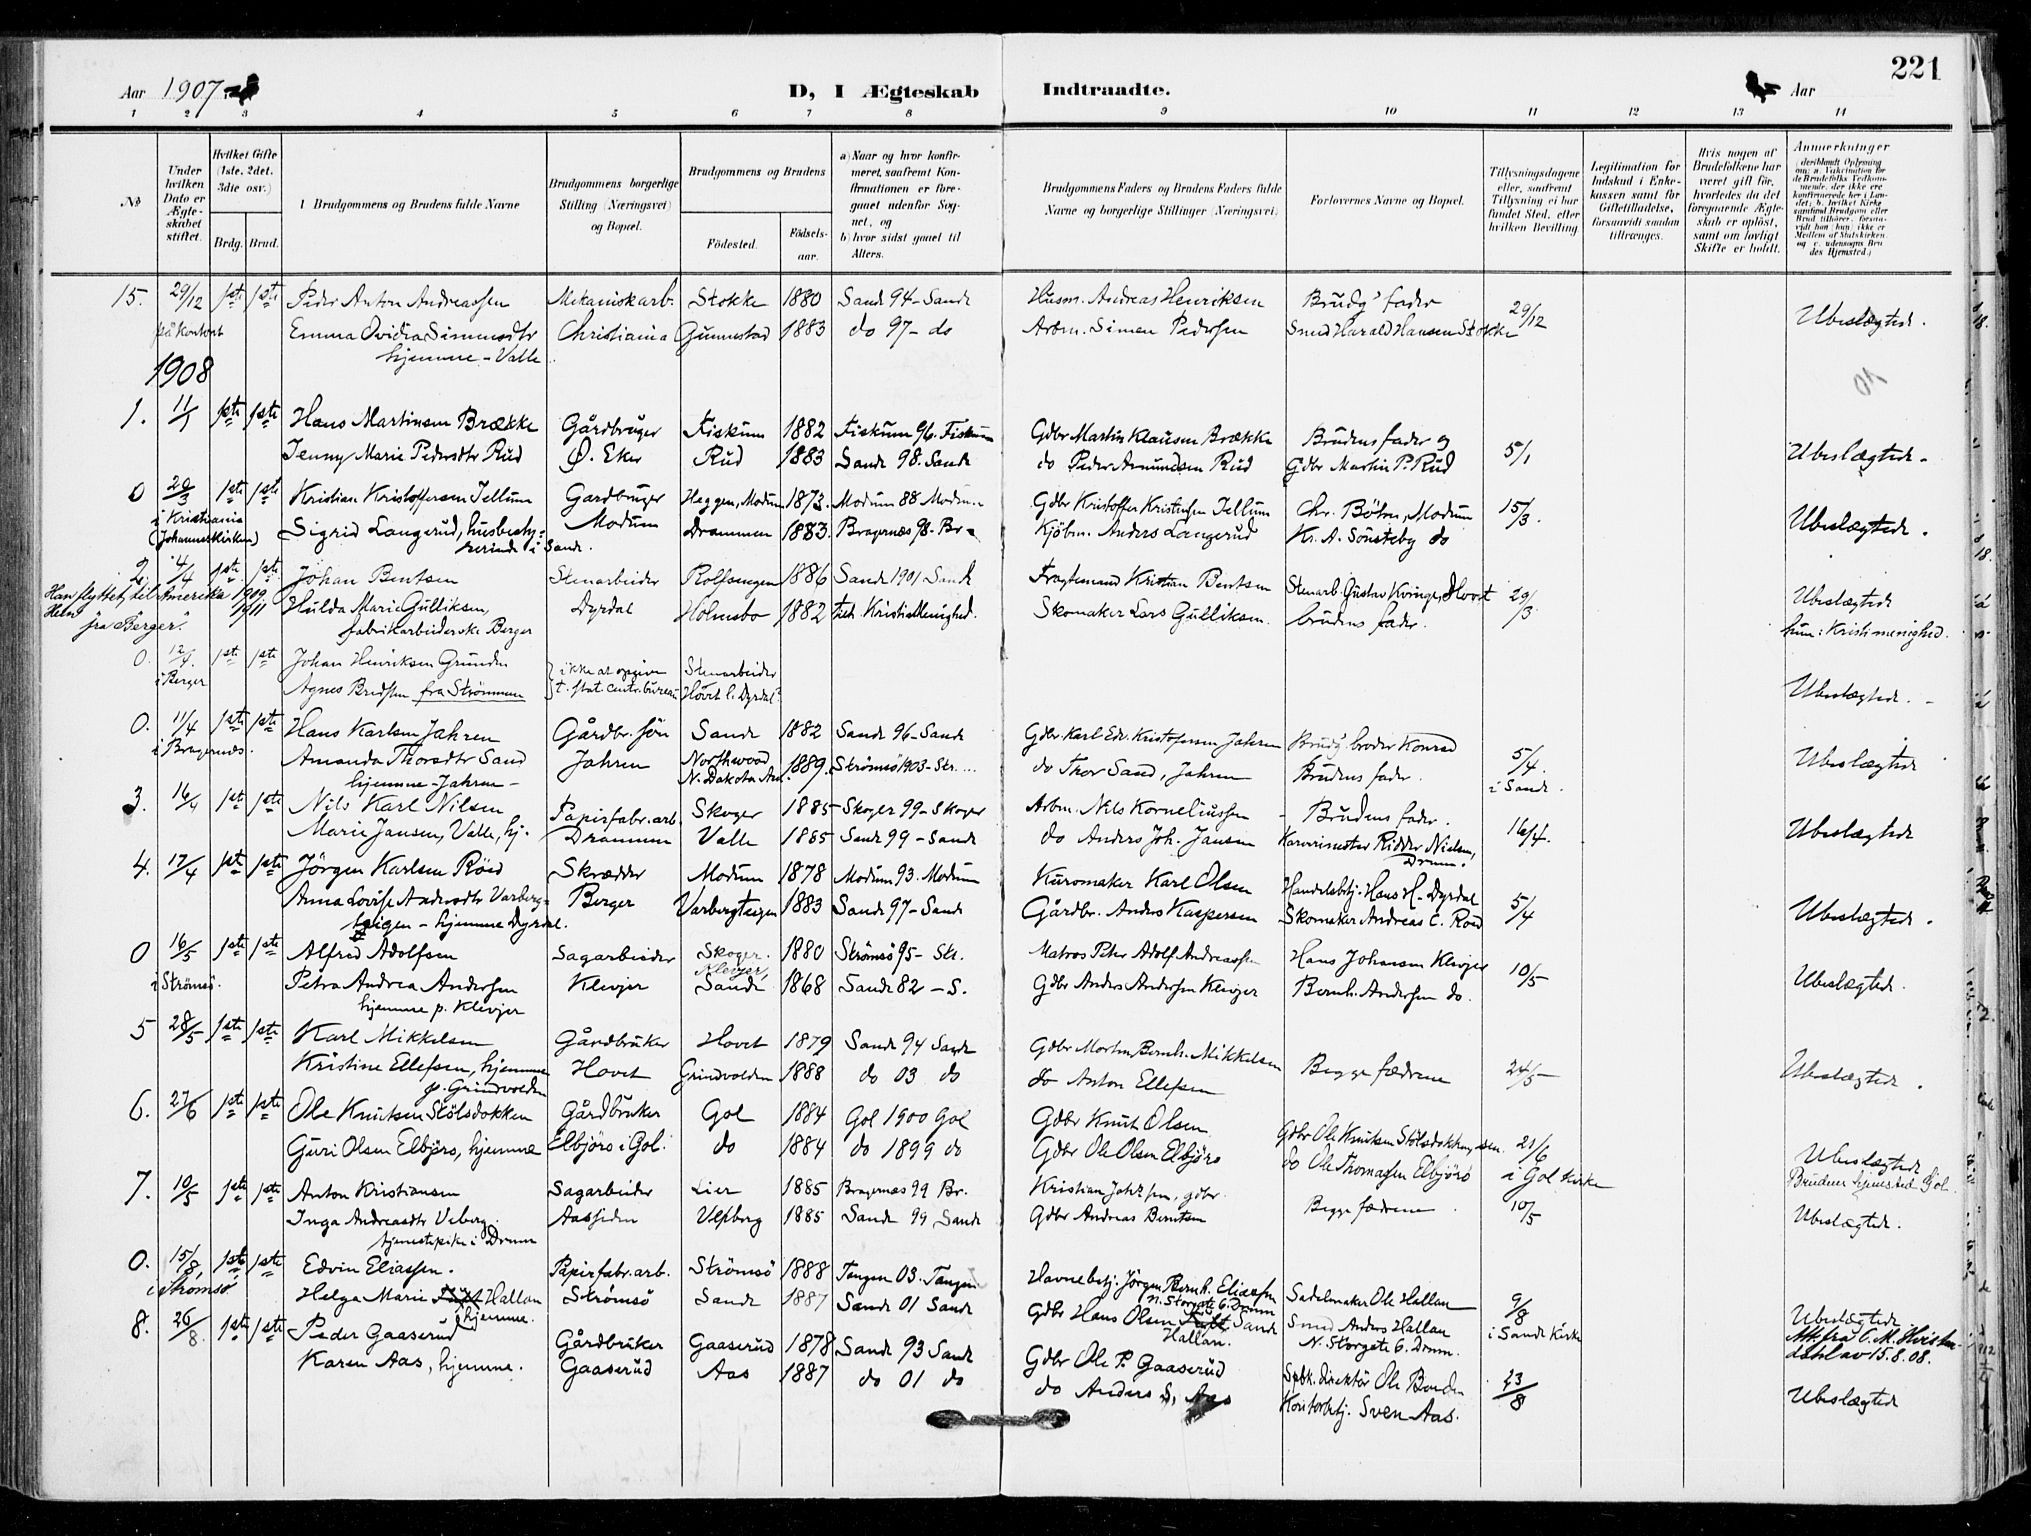 221
Aar 1907
D, I Ægteskab Indtraadte.
Aar
1 2 3 4 5 6 7 8 9 10 11 12 13 14
No
Under hvilken Dato er Ægteskabet stiftet.
Hvilket Gifte (1ste, 2det, 3die osv.)
Brdg. Brud.
Brudgommens og Brudens fulde Navne
Brudgommens borgerlige Stilling (Næringsvei) og Bopæl.
Brudgommens og Brudens
Fødested.
Fødselsaar.
a) Naar og hvor konfirmeret, saafremt Konfirmationen er foregaaet udenfor Sognet, og
b) hvor sidst gaaet til Alters.
Brudgommens Faders og Brudens Faders fulde Navne og borgerlige Stillinger (Næringsvei)
Forlovernes Navne og Bopæl.
Tillysningsdagene eller, saafremt Tillysning ei har fundet Sted, efter hvilken Bevilling.
Legitimation for Indskud i Enkekassen samt for Giftetilladelse, forsaavidt saadan tiltrænges.
Hvis nogen af Brudefolkene har været gift før, hvorledes da det foregaaende Ægteskab er opløst, samt om lovligt Skifte er holdt.
Anmerkninger
15. 29/12 1ste 1ste Peder Anton Andreassen Mekaniskarb. Stokke 1880 Sande 94 - Sande Husm. Andreas Henriksen Brudg' fader 29/12 Ubeslægtede.
på kontoret Emma Ovidia Simensdtr Christiania Gunnestad 1883 do 97 - do Arbm. Simen Pedersen Smed Harald Hansen Stokke
hjemme - Valle.
1908
1. 11/1 1ste 1ste Hans Martinsen Brække Gårdbruger Fiskum 1882 Fiskum 96. Fiskum Gdbr Martin Klausen Brække Brudens fader og 5/1 Ubeslægtede.
Jenny Marie Pedersdtr Rud Ø. Eker Rud 1883 Sande 98. Sande do Peder Amundsen Rud Gdbr Martin P. Rud
0 28/3 1ste 1ste Kristian Kristoffersen Tellum Gardbruger Heggen, Modum 1873. Modum 88 Modum Gdbr Kristoffer Kristensen Tellum Chr. Böhn, Modum 15/3. Ubeslægtede.
i Kristiania (Johanneskirken) Sigrid Langerud, husbesty- Modum Drammen 1883. Bragernæs 98. Br. Kjöbm. Anders Langerud Kr. A. Sönsteby do
rerinde i Sande.
2 4/4 1ste 1ste Johan Bentsen Stenarbeider Rolfsengen 1886 Sande 1901 Sande Fragtemand Kristian Bentsen Stenarb. Gustav Kvinge, Hovet 29/3 Ubeslægtede
Han flyttet til Amerika 1909 Hulda Marie Gulliksen, Dyrdal Holmsbo 1882 Kristi Menighed. Skomaker Lars Gulliksen. brudens fader. hun: Kristi menighed.
Hun fra Berger. 1911 fabrikarbeiderske Berger
0. 12/4. 1ste 1ste Johan Henriksen Grunden ikke at opgive Stenarbeider
i Berger Agnes Bredsen fra Strömmen t. stat. centr. büreau Hovet l. Dyrdal? Ubeslægtede.
0. 11/4 1ste 1ste Hans Karlsen Jahren Gårdbr. søn Sande 1882 Sande 96 - Sande Gdbr. Karl Edv. Kristofersen Jahren Brudg' broder Konrad 5/4. Ubeslægtede
i Bragernæs. Amanda Thorsdtr Sand Jahren Northwood N. Dakota Am. 1889. Strömsö 1903 - Str. do Thor Sand, Jahren Brudens fader. i Sande.
hjemme - Jahren -
3. 16/4 1ste 1ste Nils Karl Nilsen Papirfabr. arb. Skoger 1885 - Skoger 99 - Skoger Arbm. Nils Korneliussen - Brudens fader. 16/4. Ubeslægtede
Marie Jansen, Valle, hj. Drammen Valle 1885 Sande 99 - Sande do Anders Joh. Jansen Karverimester Ridder Nielsen, Dramm.
4. 17/4 1ste 1ste Jörgen Karlsen Röed Skrædder Modum 1878 Modum 93. Modum Kuromaker Karl Olsen Handelsbetj. Hans H. Dyrdal 5/4 Ubeslægtede.
Anna Lovise Andersdtr Varberg- Berger Varbergteigen 1883 Sande 97 - Sande Gårdbr. Anders Kaspersen Skomaker Andreas C. Roed
teigen - hjemme Dyrdal.
0 16/5 1ste 1ste Alfred Adolfsen Sagarbeider Skoger. 1880 Strömsö 95 - Str. Matros Peter Adolf Andreassen Hans Johansen Klevjer 10/5 Ubeslægtede.
i Strömsö. Petra Andrea Andersen Klevjer Klevjer, Sande 1868 Sande 82 - S. Gdbr Anders Andersen Klevjer Bernh. Andersen do.
hjemme p. Klevjer
5 28/5 1ste 1ste Karl Mikkelsen Gårdbruker Hovet 1879 Sande 94 Sande Gdbr Morten Bernh. Mikkelsen Begge fædrene 24/5 Ubeslægtede.
Kristine Ellefsen, hjemme Hovet Grindvolden 1888 do 03 do do Anton Ellefsen
p. Grindvolden
6. 27/6 1ste 1ste Ole Knutsen Stölsdokken Gårdbruker Gol 1884 Gol 1900 Gol Gdbr Knut Olsen Gdbr Ole Knutsen Stölsdokken, sen. 21/6 Ubeslægtede
Guri Olsen Elbjörs, hjemme Elbjörs i Gol. do 1884 do 1899 do Gdbr Ole Olsen Elbjörs do Ole Thomassen Elbjörs i Gol Kirke Brudens hjemsted Gol.
7. 10/5 1ste 1ste Anton Kristiansen Sagarbeider Lier 1885 Bragernæs 99 Br. Kristian , gdbr. Begge fædrene. 10/5 Ubeslægtede.
Inga Andreasdtr Veberg. Aassiden Veberg 1885 Sande 99 Sande Gdbr Andreas Berntsen
tjenestepike i Dramm
0. 15/8. 1ste 1ste Edvin Eliassen. Papirfabr. arb. Strömsö 1888 Tangen 03. Tangen Havnebetj. Jörgen Bernh. Eliassen N. Storgate 6. Dramm Sadelmaker Ole Hallan 9/8 Ubeslægtede
i Strömsö. Helga Marie Hallan hjemme. Strömsö Sande 1887 Sande 01 Sande Gdbr Hans Olsen Sande Hallan. Smed Anders Hallan N. Storgate 6. Dramm. i Sande Kirke Att. fra C. M. Hvistendahl av 15.8.08.
8. 26/8. 1ste 1ste Peder Gaaserud Gårdbruker Gaaserud 1878 Sande 93 Sande Gdbr Ole P. Gaaserud Spbk. direktör Ole Borden 23/8 Ubeslægtede
Karen Aas, hjemme. Gaaserud Aas 1887 do 01 do do Anders S. Aas Kontorbetj. Sven Aas.